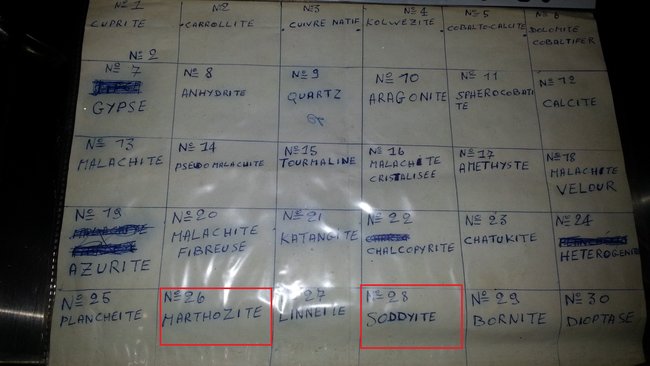 Nº 1 Nº 2 Nº 3 Nº 4 Nº 5 Nº 6
CUPRITE CARROLLITE CUIVRE NATIF KOLWEZITE COBALTO-CALCITE DOLOMITE
COBALTIFER
Nº 2
Nº 7 Nº 8 Nº 9 Nº 10 Nº 11 Nº 12
GYPSE ANHYDRITE QUARTZ ARAGONITE SPHEROCOBALTI
TE CALCITE
Nº 13 Nº 14 Nº 15 Nº 16 Nº 17 Nº 18
MALACHITE PSEUDO MALACHITE TOURMALINE MALACHITE
CRISTALISEE AMETHYSTE MALACHITE
VELOUR
Nº 19 Nº 20 Nº 21 Nº 22 Nº 23 Nº 24
AZURITE MALACHITE
FIBREUSE KATANGITE CHALCOPYRITE CHATUKITE HETEROGENITE
Nº 25 Nº 26 27 Nº 28 Nº 29 Nº 30
PLANCHEITE MARTHOZITE LINNEITE SODDYITE BORNITE DIOPTASE